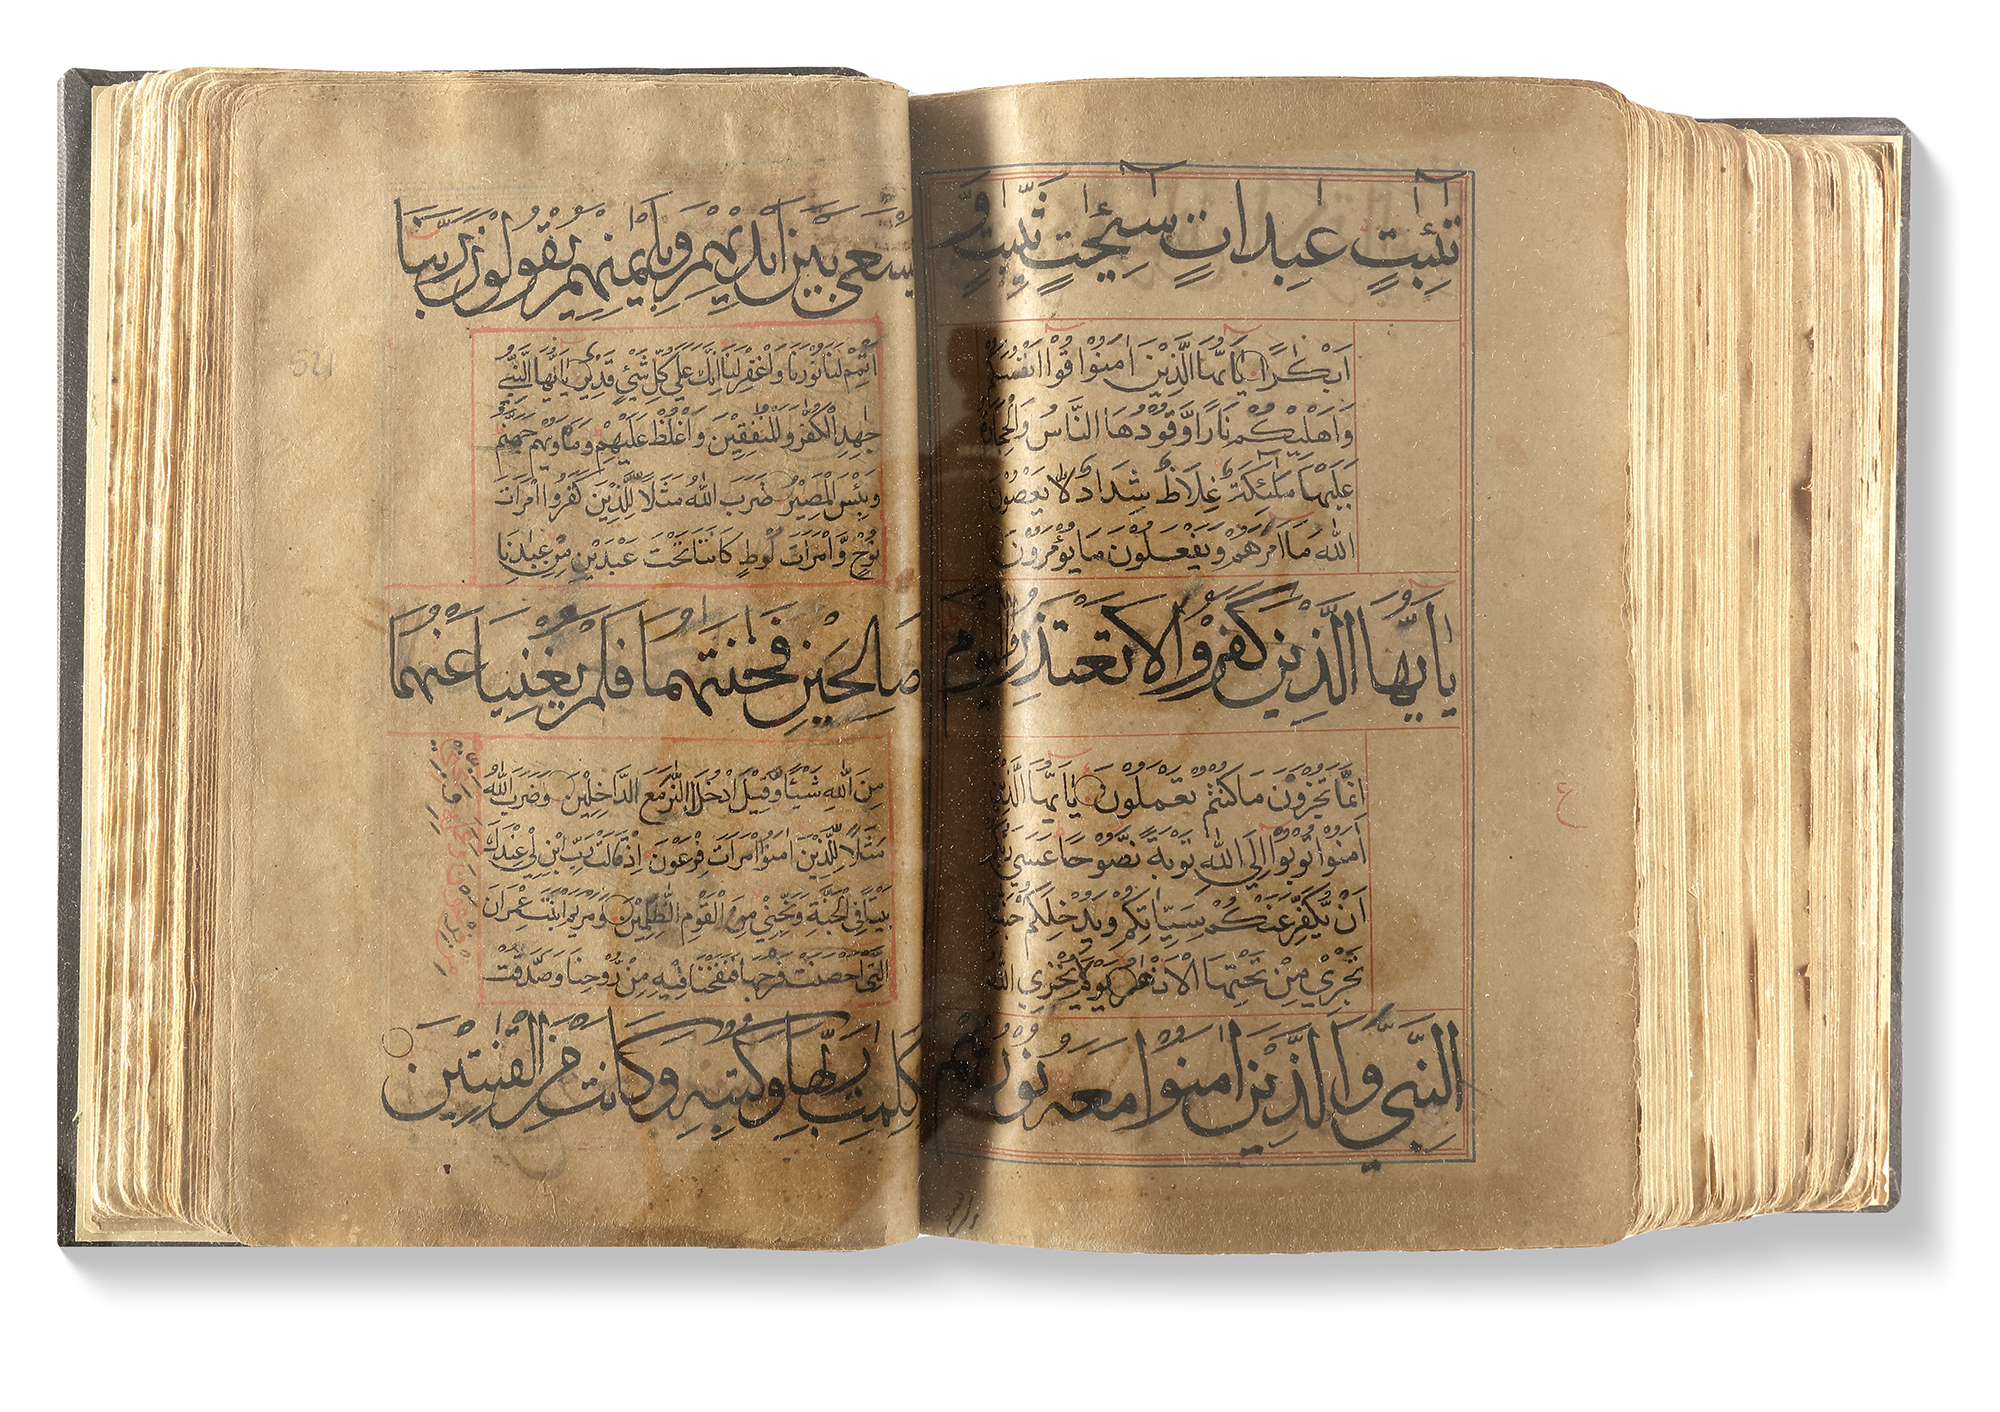 تٰٓئِبٰتٍ عٰبِدَاتٍ سٰٓئِحٰتٍ ثَيِّبٰتٍ وَّ
اَبْكَارًا يٰاَيُّهَا الَّذِيْنَ اٰمَنُوْا قُوْا اَنْفُسَكُمْ
وَاَهْلِيْكُمْ نَارًا وَّقُوْدُهَا النَّاسُ وَالْحِجَارَةُ
عَلَيْهَا مَلٰٓئِكَةٌ غِلَاظٌ شِدَادٌ لَّا يَعْصُوْنَ
اللّٰهَ مَا اَمَرَهُمْ وَيَفْعَلُوْنَ مَا يُؤْمَرُوْنَ
يٰاَيُّهَا الَّذِيْنَ كَفَرُوْا لَا تَعْتَذِرُوا الْيَوْمَ
اِنَّمَا تُجْزَوْنَ مَا كُنْتُمْ تَعْمَلُوْنَ يٰاَيُّهَا الَّذِيْنَ
اٰمَنُوْا تُوْبُوْا اِلَى اللّٰهِ تَوْبَةً نَّصُوْحًا عَسٰى رَبُّكُمْ
اَنْ يُّكَفِّرَ عَنْكُمْ سَيِّاٰتِكُمْ وَيُدْخِلَكُمْ جَنّٰتٍ
تَجْرِيْ مِنْ تَحْتِهَا الْاَنْهٰرُ يَوْمَ لَا يُخْزِي اللّٰهُ
النَّبِيَّ وَالَّذِيْنَ اٰمَنُوْا مَعَهٗ نُوْرُهُمْ
يَسْعٰى بَيْنَ اَيْدِيْهِمْ وَبِاَيْمٰنِهِمْ يَقُوْلُوْنَ رَبَّنَا
اَتْمِمْ لَنَا نُوْرَنَا وَاغْفِرْ لَنَا اِنَّكَ عَلٰى كُلِّ شَيْءٍ قَدِيْرٌ يٰاَيُّهَا النَّبِيُّ
جَاهِدِ الْكُفَّارَ وَالْمُنٰفِقِيْنَ وَاغْلُظْ عَلَيْهِمْ وَمَأْوٰىهُمْ جَهَنَّمُ
وَبِئْسَ الْمَصِيْرُ ضَرَبَ اللّٰهُ مَثَلًا لِّلَّذِيْنَ كَفَرُوا امْرَاَتَ
نُوْحٍ وَّامْرَاَتَ لُوْطٍ كَانَتَا تَحْتَ عَبْدَيْنِ مِنْ عِبَادِنَا
صَالِحَيْنِ فَخَانَتٰهُمَا فَلَمْ يُغْنِيَا عَنْهُمَا
مِنَ اللّٰهِ شَيْئًا وَّقِيْلَ ادْخُلَا النَّارَ مَعَ الدَّاخِلِيْنَ وَضَرَبَ اللّٰهُ
مَثَلًا لِّلَّذِيْنَ اٰمَنُوا امْرَاَتَ فِرْعَوْنَ اِذْ قَالَتْ رَبِّ ابْنِ لِيْ عِنْدَكَ
بَيْتًا فِي الْجَنَّةِ وَنَجِّنِيْ مِنَ الْقَوْمِ الظّٰلِمِيْنَ وَمَرْيَمَ ابْنَتَ عِمْرَانَ
الَّتِيْ اَحْصَنَتْ فَرْجَهَا فَنَفَخْنَا فِيْهِ مِنْ رُّوْحِنَا وَصَدَّقَتْ
بِكَلِمٰتِ رَبِّهَا وَكُتُبِهٖ وَكَانَتْ مِنَ الْقٰنِتِيْنَ